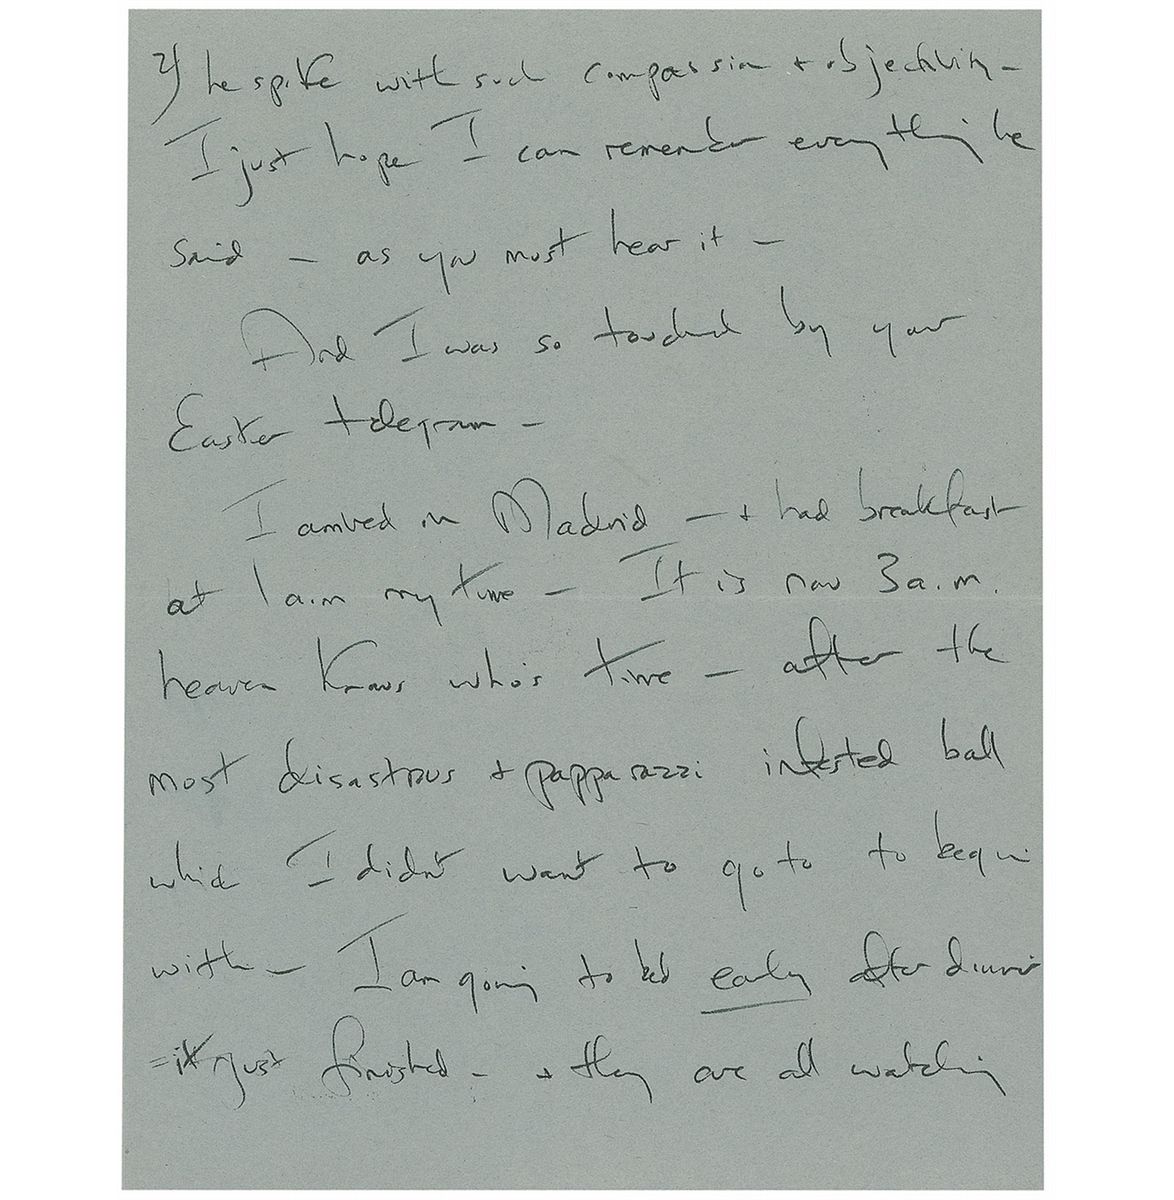 2/ he spoke with such compassion + objectivity –
I just hope I can remember everything he
said – as you must hear it –
And I was so touched by your
Easter telegram –
I arrived in Madrid – + had breakfast
at 1 a.m my time – It is now 3 a.m.
heaven knows who's time – after the
most disastrous + papparazzi infested ball
which I didn't want to go to to begin
with – I am going to bed early after dinner
= it just finished – + they are all watching